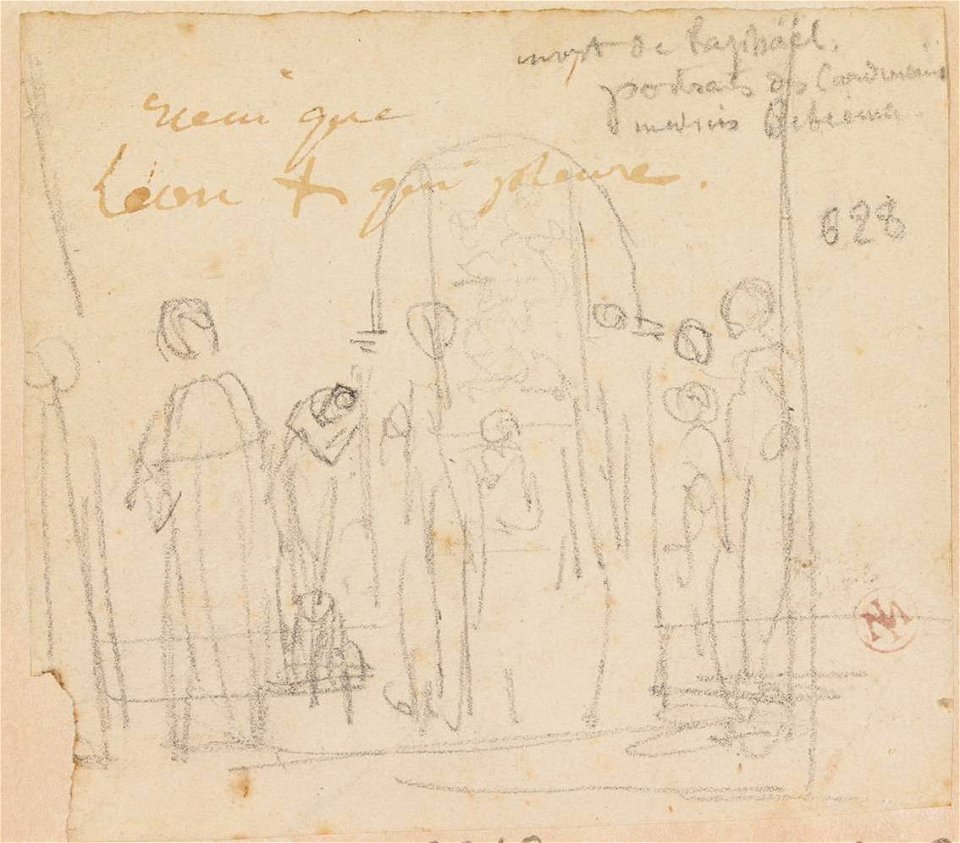 mort de Raphaël.
portrais des Cardineaux
Bibiena.
que
Léon X qui pleure.
628